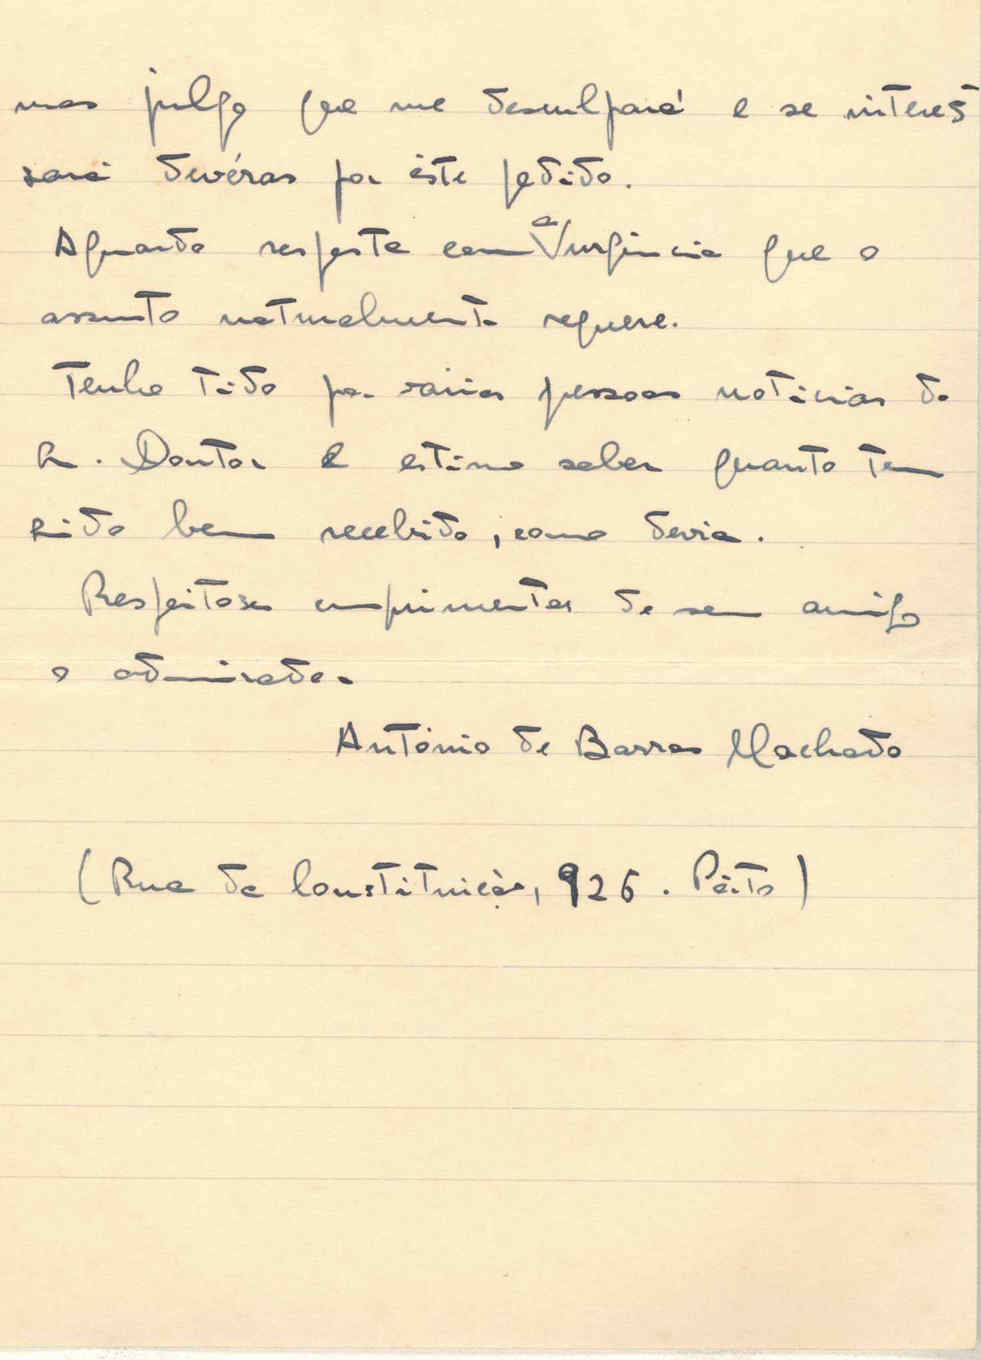 mas julgo que me desculpará e se interes
sará devéras por êste pedido.
Aguardo resposta com a urgência que o
assunto naturalmente requere.
Tenho tido por várias pessoas notícias do
Sr. Doutor e estimo saber quanto tem
sido bem recebido, como devia.
Respeitosos cumprimentos de seu amigo
e admirador
António de Barros Machado
(Rua da Constituição, 926. Pôrto)